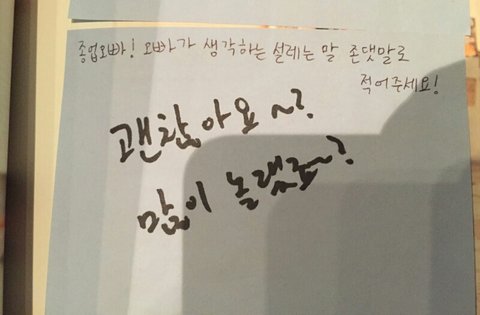 종업오빠! 오빠가 생각하는 설레는 말 존댓말로
적어주세요!
괜찮아요~?
많이 놀랬죠~?